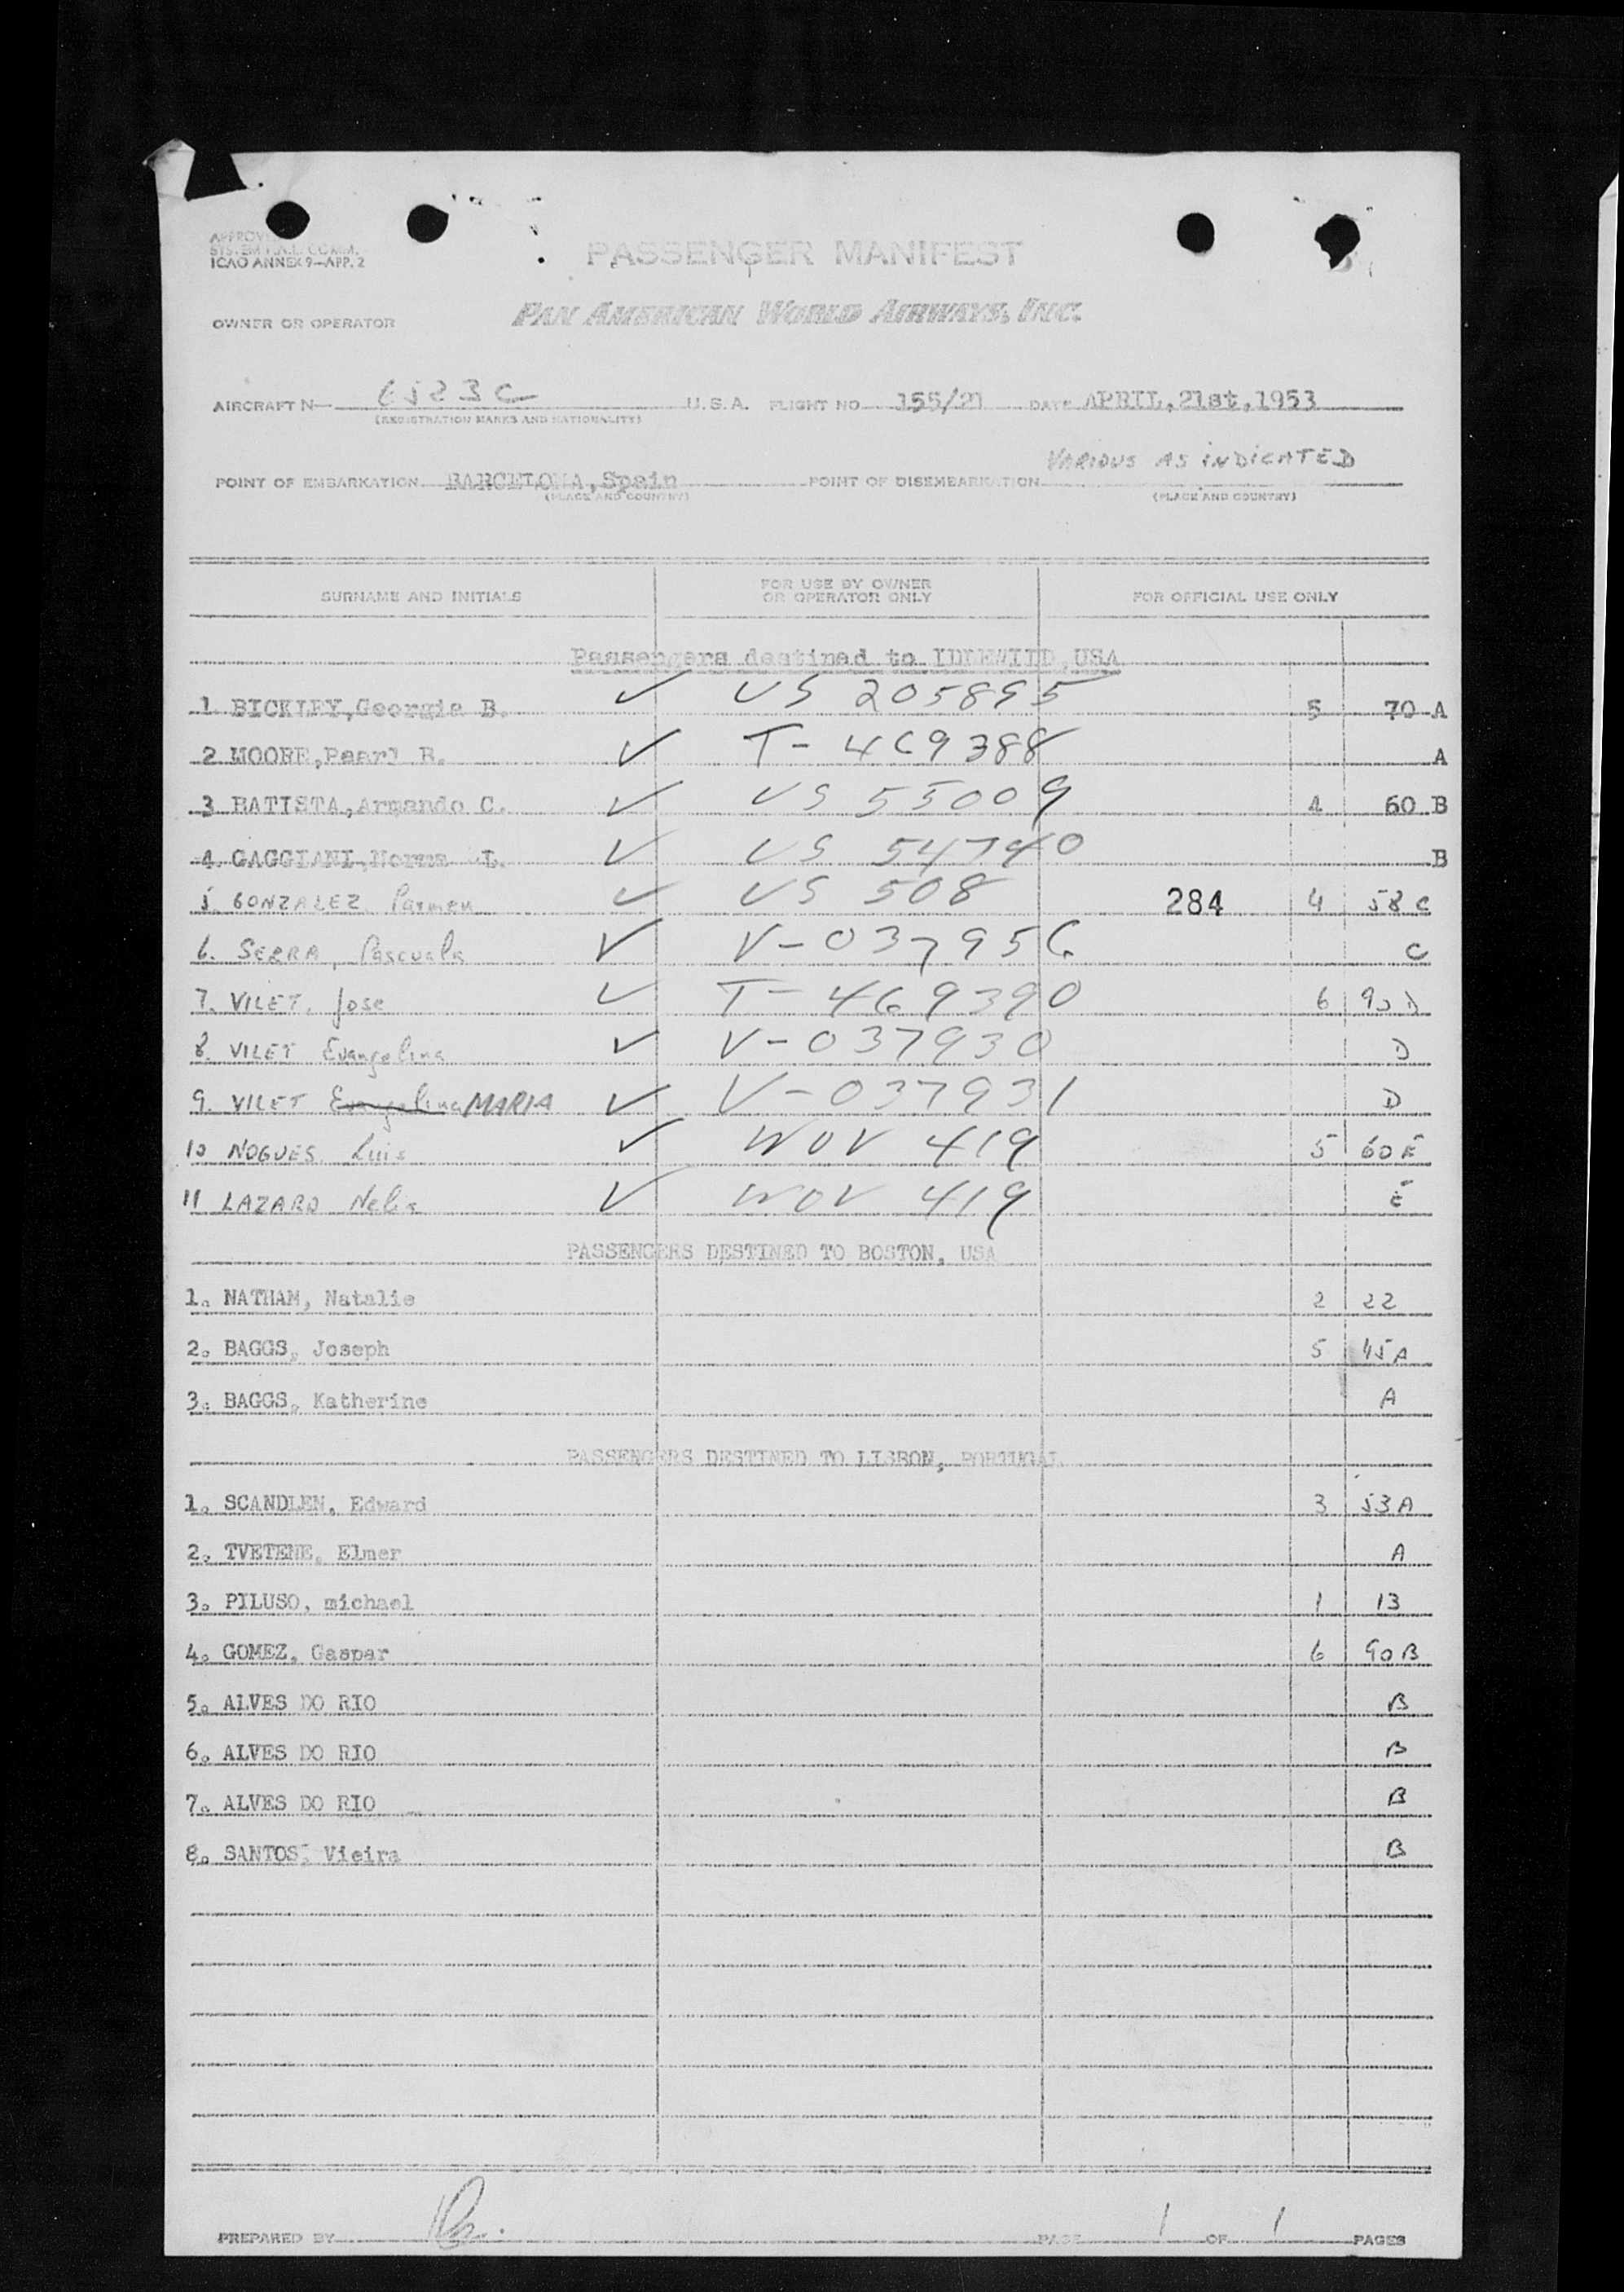 ICAO ANNEX 9—APP. 2
PASSENGER MANIFEST
OWNER OR OPERATOR PAN AMERICAN WORLD AIRWAYS, INC.
AIRCRAFT N— 6523C U.S.A. FLIGHT NO 155/21 DATE APRIL,21st,1953
(REGISTRATION MARKS AND NATIONALITY)
VARIOUS AS INDICATED
POINT OF EMBARKATION BARCELONA,Spain POINT OF DISEMBARKATION
(PLACE AND COUNTRY) (PLACE AND COUNTRY)
SURNAME AND INITIALS FOR USE BY OWNER OR OPERATOR ONLY FOR OFFICIAL USE ONLY
Passengers destined to IDLEWILD,USA
1 BICKLEY,Georgia B. ✓ US 205895 5 70 A
2 MOORE,Pearl B. ✓ T-469388 A
3 BATISTA,Armando C. ✓ US 55009 4 60 B
4. GAGGIANI,Norma L. ✓ US 54740 B
5. GONZALEZ Carmen ✓ US 508 284 4 58 C
6. SERRA, Pascuala ✓ V-037956 C
7. VILET, Jose ✓ T-469390 6 90 D
8. VILET Evangelina ✓ V-037930 D
9. VILET Evangelina MARIA ✓ V-037931 D
10 NOGUES Luis ✓ WOV 419 5 60 E
11 LAZARO Nelia ✓ WOV 419 E
PASSENGERS DESTINED TO BOSTON, USA
1. NATHAM, Natalie 2 22
2. BAGGS, Joseph 5 45 A
3. BAGGS, Katherine A
PASSENGERS DESTINED TO LISBON, PORTUGAL
1. SCANDLEN, Edward 3 53 A
2. TVETENE, Elmer A
3. PILUSO, michael 1 13
4. GOMEZ, Gaspar 6 90 B
5. ALVES DO RIO B
6. ALVES DO RIO B
7. ALVES DO RIO B
8. SANTOS, Vieira B
PREPARED BY PAGE 1 OF 1 PAGES